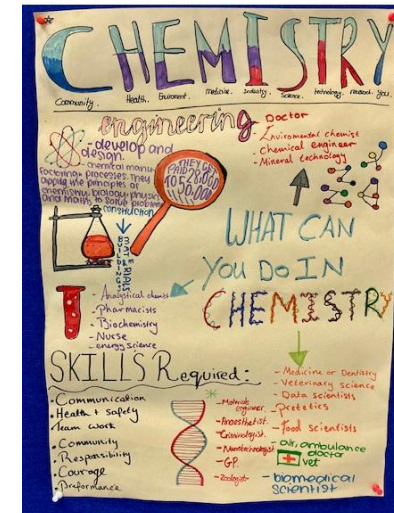 CHEMISTRY
Community. Health. Enviroment. Medicine. Industry. Science. technology. research. You.
engineering
- develop and
design.
- chemical manu-
factoring processes. They
apply the principles of
chemistry, biology, physics
and maths to solve problems
construction
BUILDING MATERIALS
THEY GET
PAID 28,000
TO 52,000
Doctor
- Enviromental chemist
- Chemical engineer
- Mineral technology
WHAT CAN
YOU DO IN
CHEMISTRY
- Analytical chemist
- Pharmacists
- Biochemistry
- Nurse
- energy science
SKILLS Required:
• Communication
• Health + safety
Team work
• Community
• Responsibility
• Courage
• Preformance
- Materials
engineer
- Anaesthetist.
- Criminologist.
- Nanotechnologist
- GP.
- Zoologist
- Medicine or Dentistry
- Veterinary science
- Data scientists
- Dietetics
- Food scientists
- air, ambulance
doctor
vet
- biomedical
scientist